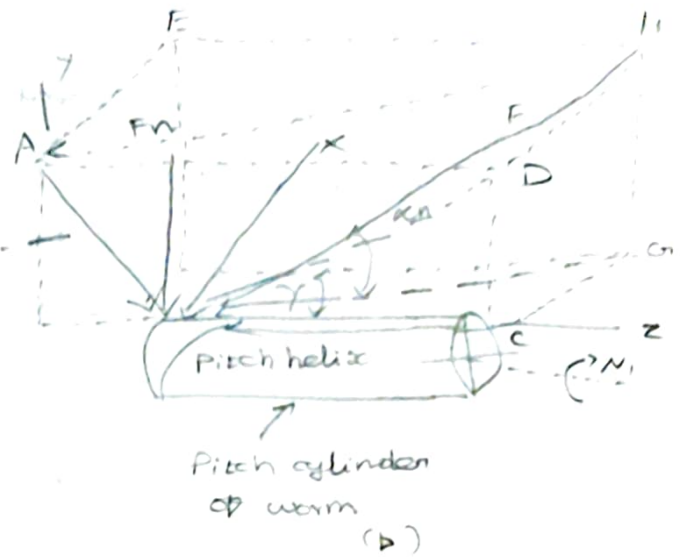 E
y
Fn
A
x
F
D
αn
γ
G
Pitch helix
C
z
N1
Pitch cylinder
of worm
(b)